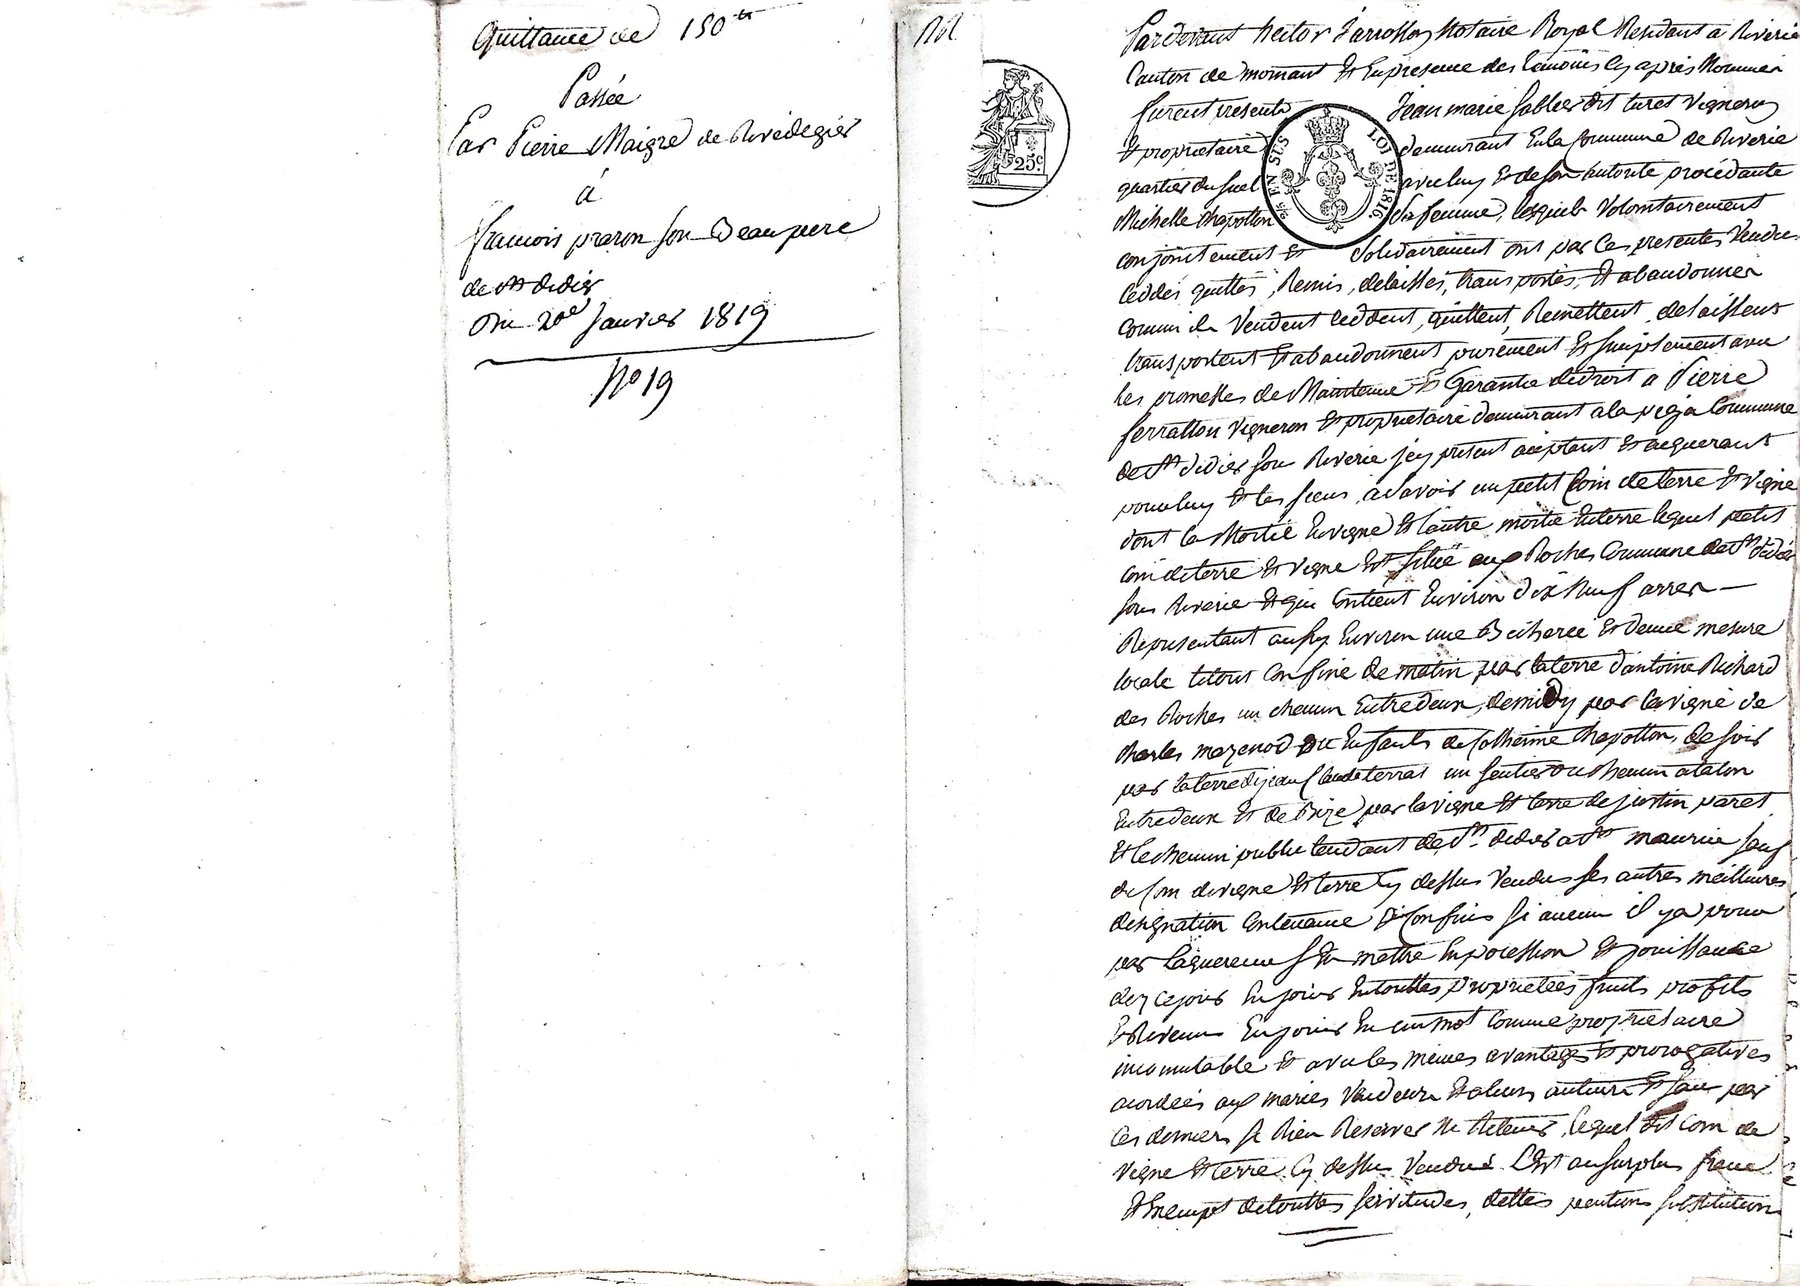 Quittance de 150ᵗᵗ
Passée
Par Pierre Maigre de Rivedegier
à
francois praron son Beau pere
de st didier
Du 20e Janvier 1819
No 19
25c.
EN SUS
LOI DE 1816
Pardevant hector Notaire Royal Residant a Riverie
Canton de mornant Et En presence des temoins Cy après Nommés
furent presents Jean marie dit vigneron
Et proprietaire demeurant En la Commune de Riverie
quartier du avec luy Et de son autorité procédante
Michelle Chapotton Sa femme, lesquels Volontairement
conjointement Et Solidairement ont par Ces presentes Vendu
Ceddés quittés, Remis, delaissés, transportés, Et abandonnés
comme ils Vendent Ceddent, quittent, Remettent, delaissent
transportent Et abandonnent purement Et simplement avec
les promesses de Maintenue Et Garantie de droit a Pierre
ferratton vigneron Et proprietaire demeurant a la Commune
de st didier sou Riverie icy présent aceptant Et acquerant
pour luy Et les siens, a savoir un petit Coin de terre Et vigne
dont la Moitié En vigne Et l'autre moitié En terre lequel petit
coin de terre Et vigne Est situé aux Roches Commune de st didier
sous Riverie Et qui Contient Environ dix Neuf arres
Representant aussy Environ une Bicheree Et demie mesure
locale le tout Confine de matin par la terre d'antoine Richard
des Roches un chemin Entredeux, de midy par la vigne de
Charles mazenod ou Enfants de Catherine Chapotton, de soir
par la terre de jean Claude terras un sentier ou chemin a talon
Entredeux Et de Bize par la vigne Et terre de justin paret
Et le chemin public tendant de st didier a st maurice sauf
du Coin de vigne Et terre Cy dessus Vendus ses autres meilleures
designation Contenance Et Confins si aucun il y a pour
par Laquereur s'En mettre En possession Et jouissance
dez ce jour En jouir En touttes proprietées fruits profits
Et Revenus En jouir En un mot Comme proprietaire
incomutable Et avec les mêmes avantages Et prerogatives
acordées aux mariés Vendeurs Et a leurs auteurs Et sans par
Ces derniers se Rien Reserver Ne Retenir, lequel dit Coin de
vigne Et terre Cy dessus Vendué Est au surplus franc
Et Exempt de touttes servitudes, dettes pentions substitution